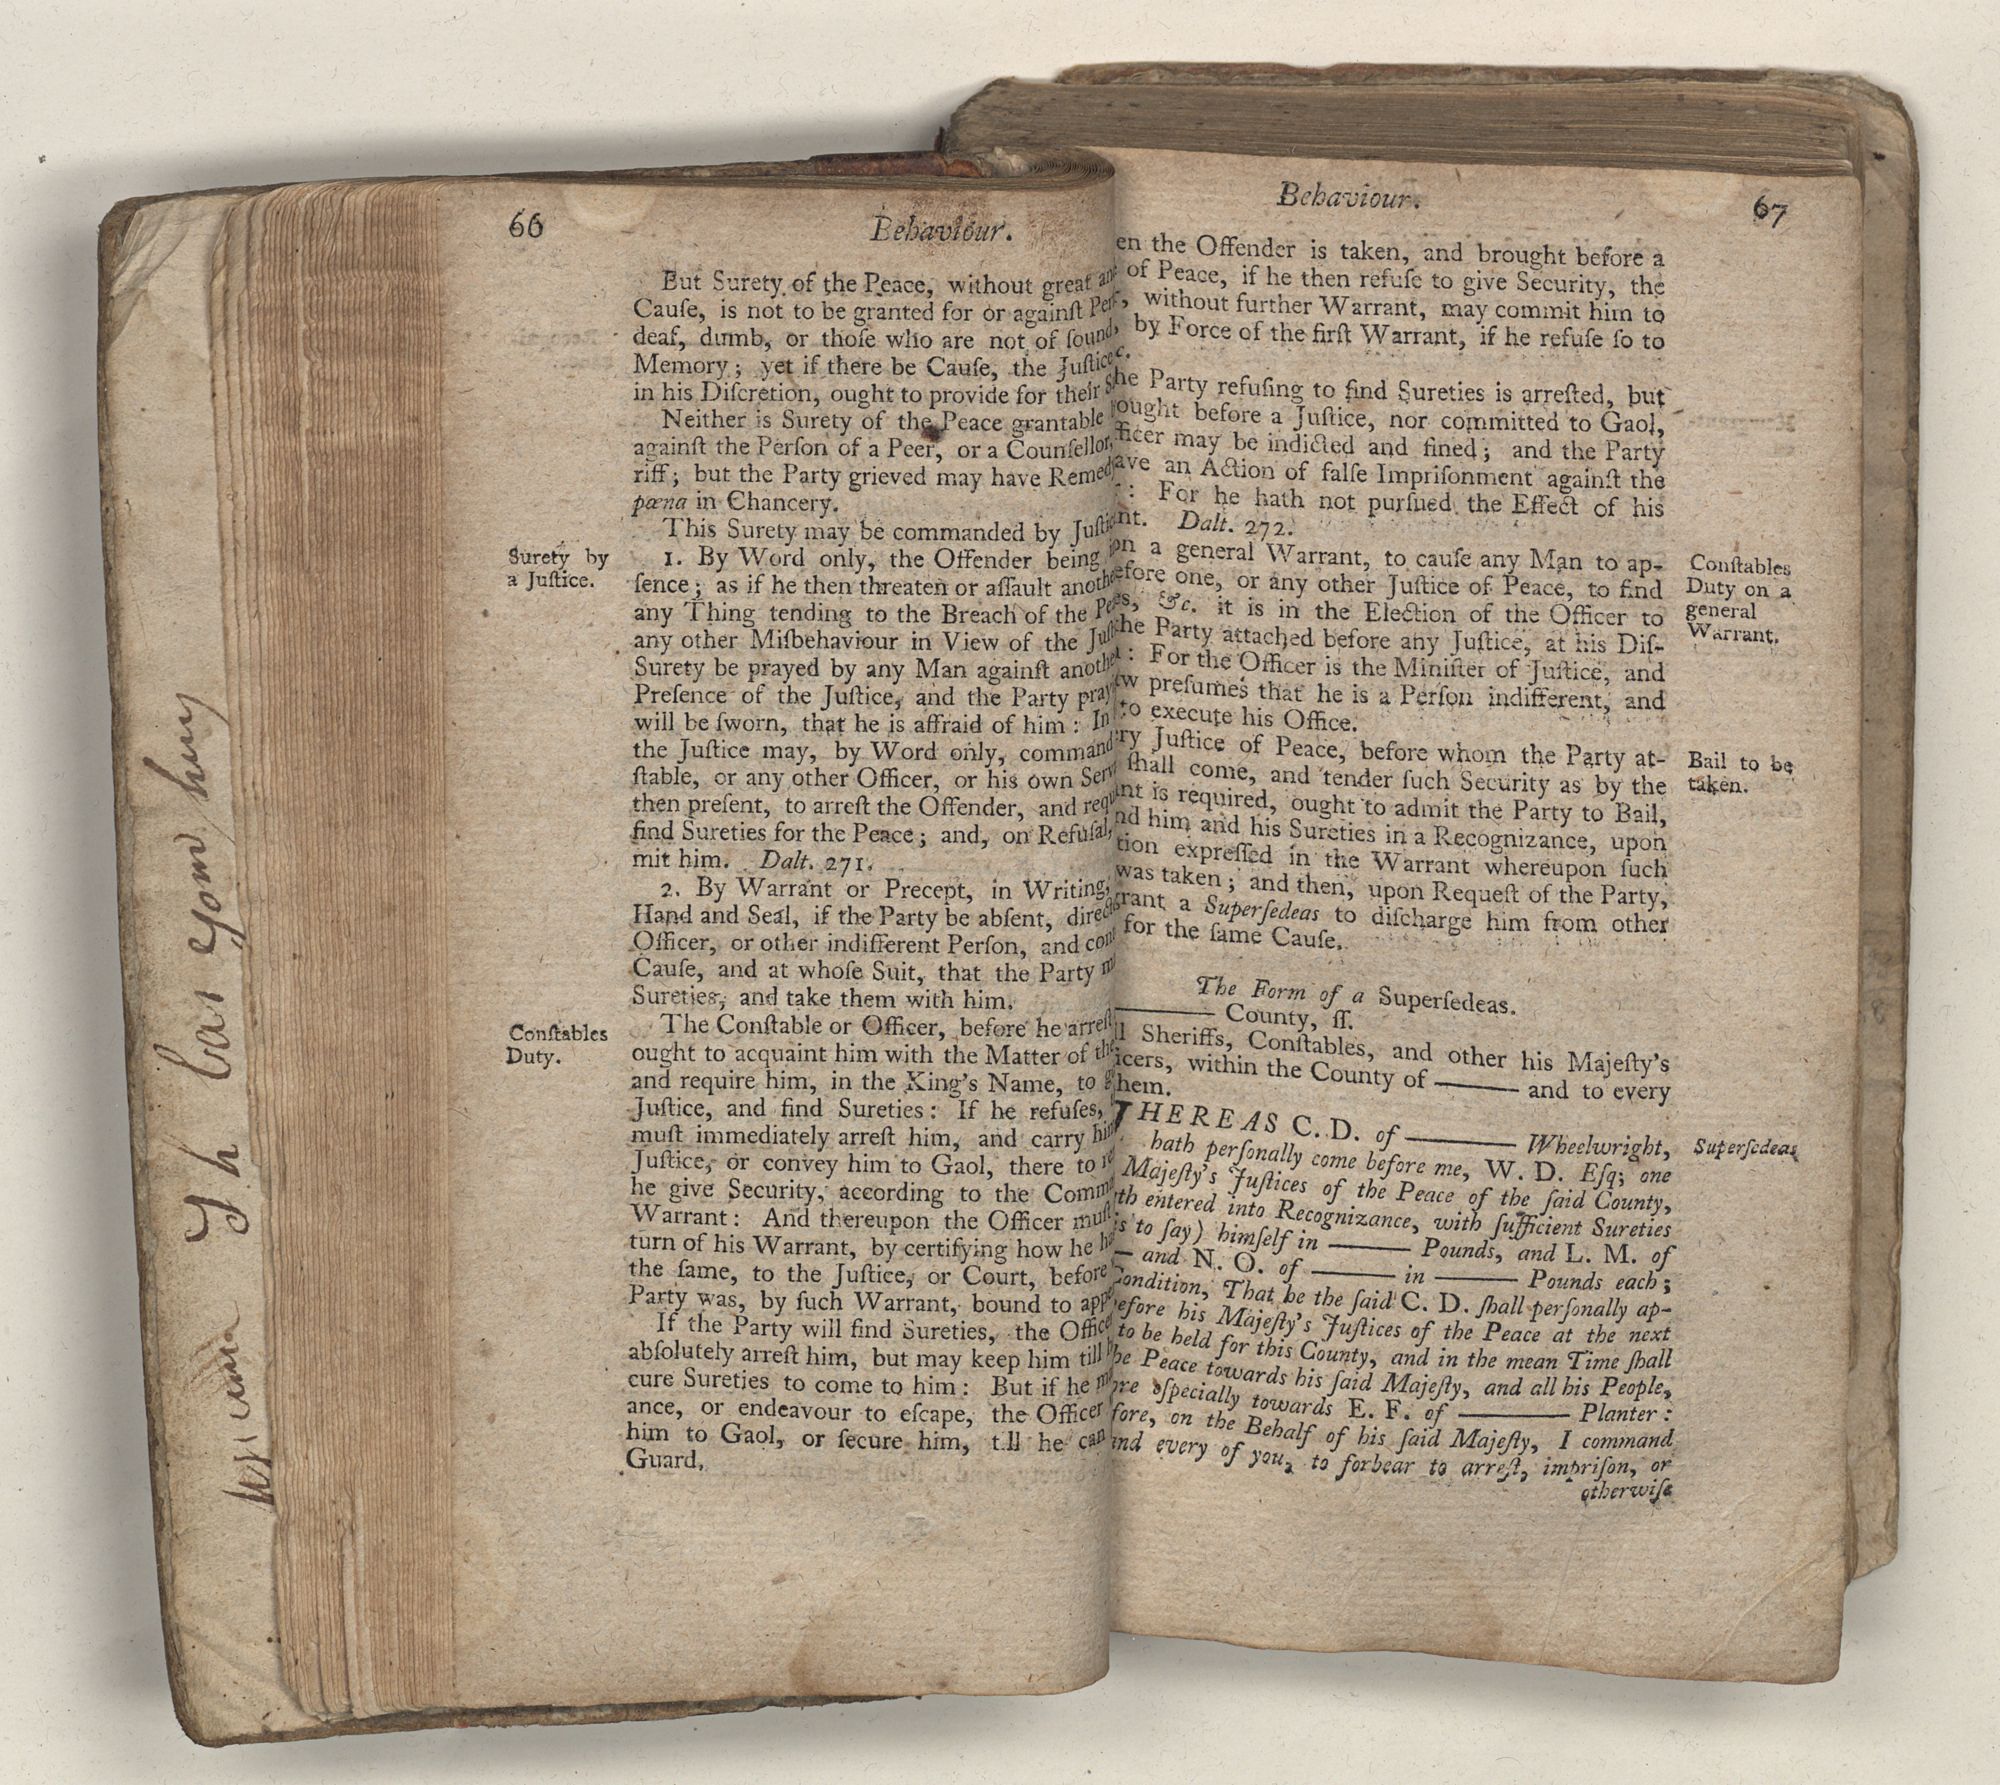 66
Behaviour.
But Surety of the Peace, without great and
Cauſe, is not to be granted for or againſt
deaf, dumb, or thoſe who are not of ſound
Memory; yet if there be Cauſe, the Juſtice
in his Diſcretion, ought to provide for their
Neither is Surety of the Peace grantable
againſt the Perſon of a Peer, or a Counſellor,
riff; but the Party grieved may have
pœna in Chancery.
This Surety may be commanded by
Surety by
a Juſtice.
1. By Word only, the Offender being
ſence; as if he then threaten or aſſault
any Thing tending to the Breach of the
any other Miſbehaviour in View of the
Surety be prayed by any Man againſt
Preſence of the Juſtice, and the Party
will be ſworn, that he is affraid of him: In
the Juſtice may, by Word only, command
ſtable, or any other Officer, or his own
then preſent, to arreſt the Offender, and
find Sureties for the Peace; and, on Refuſal,
mit him. Dalt. 271.
2. By Warrant or Precept, in Writing,
Hand and Seal, if the Party be abſent,
Officer, or other indifferent Perſon, and
Cauſe, and at whoſe Suit, that the Party
Sureties, and take them with him.
Conſtables
Duty.
The Conſtable or Officer, before he
ought to acquaint him with the Matter of
and require him, in the King's Name, to
Juſtice, and find Sureties: If he refuſes,
muſt immediately arreſt him, and carry
Juſtice, or convey him to Gaol, there to
he give Security, according to the
Warrant: And thereupon the Officer muſt
turn of his Warrant, by certifying how he
the ſame, to the Juſtice, or Court, before
Party was, by ſuch Warrant, bound to
If the Party will find Sureties, the
abſolutely arreſt him, but may keep him till
cure Sureties to come to him: But if he
ance, or endeavour to eſcape, the Officer
him to Gaol, or ſecure him, till he can
Guard.
Behaviour.
67
en the Offender is taken, and brought before a
of Peace, if he then refuſe to give Security, the
without further Warrant, may commit him to
by Force of the firſt Warrant, if he refuſe ſo to
he Party refuſing to find Sureties is arreſted, but
ought before a Juſtice, nor committed to Gaol,
ficer may be indicted and fined; and the Party
ave an Action of falſe Impriſonment againſt the
: For he hath not purſued the Effect of his
nt. Dalt. 272.
Conſtables
Duty on a
general
Warrant.
on a general Warrant, to cauſe any Man to ap-
efore one, or any other Juſtice of Peace, to find
es, &c. it is in the Election of the Officer to
the Party attached before any Juſtice, at his Diſ-
: For the Officer is the Miniſter of Juſtice, and
w preſumes that he is a Perſon indifferent, and
to execute his Office.
Bail to be
taken.
ry Juſtice of Peace, before whom the Party at-
ſhall come, and tender ſuch Security as by the
nt is required, ought to admit the Party to Bail,
nd him and his Sureties in a Recognizance, upon
tion expreſſed in the Warrant whereupon ſuch
was taken; and then, upon Requeſt of the Party,
rant a Superſedeas to diſcharge him from other
for the ſame Cauſe.
The Form of a Superſedeas.
——— County, ſſ.
ll Sheriffs, Conſtables, and other his Majeſty's
icers, within the County of ——— and to every
hem.
Superſedeas
HEREAS C. D. of ——— Wheelwright,
hath perſonally come before me, W. D. Eſq; one
Majeſty's Juſtices of the Peace of the ſaid County,
th entered into Recognizance, with ſufficient Sureties
is to ſay) himſelf in ——— Pounds, and L. M. of
— and N. O. of ——— in ——— Pounds each;
Condition, That he the ſaid C. D. ſhall perſonally ap-
efore his Majeſty's Juſtices of the Peace at the next
to be held for this County, and in the mean Time ſhall
he Peace towards his ſaid Majeſty, and all his People,
ore eſpecially towards E. F. of ——— Planter:
fore, on the Behalf of his ſaid Majeſty, I command
and every of you, to forbear to arreſt, impriſon, or
otherwiſe